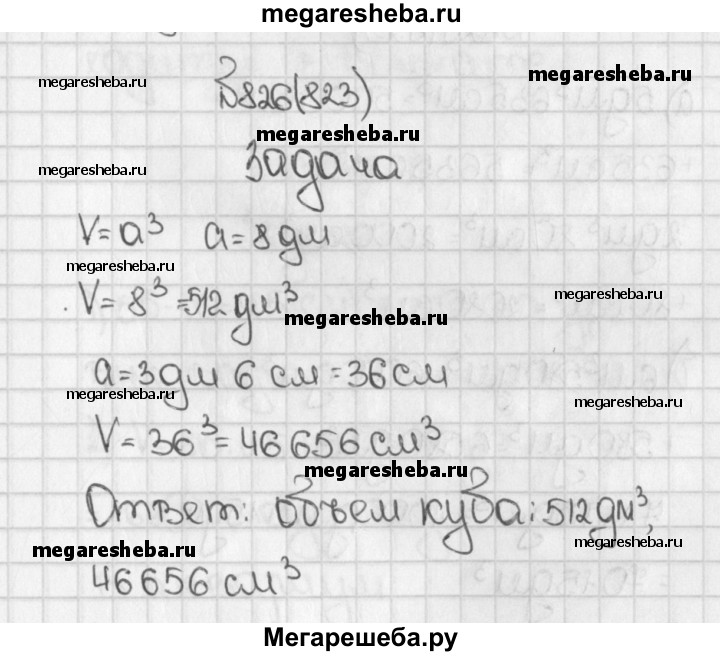 megaresheba.ru
№826(823)
megaresheba.ru
megaresheba.ru
megaresheba.ru
Задача
megaresheba.ru
V=a³ a=8дм
megaresheba.ru
V=8³=512дм³
megaresheba.ru
megaresheba.ru
a=3дм 6 см=36см
megaresheba.ru
megaresheba.ru
V=36³=46656см³
megaresheba.ru
Ответ: объем куба: 512дм³,
megaresheba.ru
megaresheba.ru
46656 см³
Мегарешеба.ру